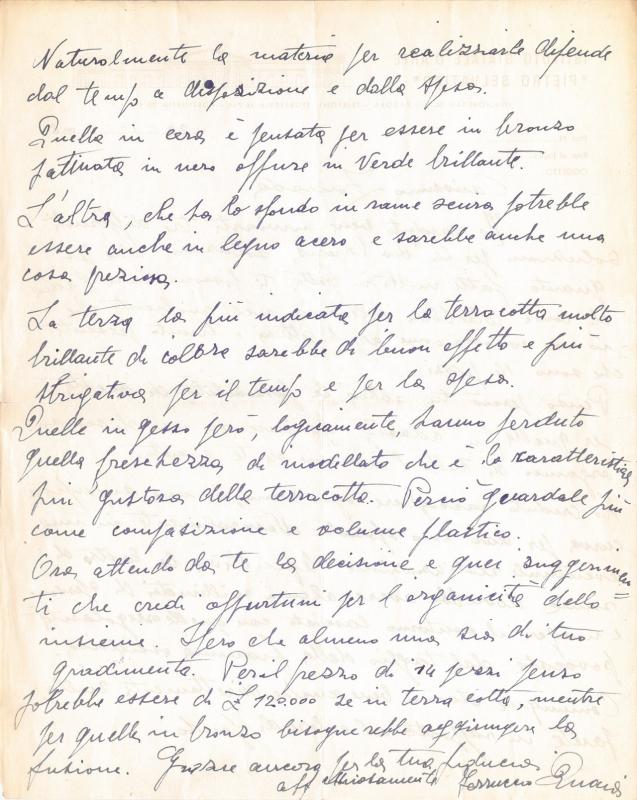 Naturalmente la materia per realizzarle dipende
dal tempo a disposizione e dalla spesa.
Quella in cera è pensata per essere in bronzo
patinata in nero oppure in verde brillante.
L'altra, che ha lo sfondo in rame scura potrebbe
essere anche in legno acero e sarebbe anche una
cosa preziosa.
La terza la più indicata per la terracotta molto
brillante di colore sarebbe di buon effetto e più
sbrigativa per il tempo e per la spesa.
Quelle in gesso però, logicamente, hanno perduto
quella freschezza di modellato che è la caratteristica
più gustosa della terracotta. Perciò guardale più
come composizione e volume plastico.
Ora attendo da te la decisione e quei suggerimen=
ti che credi opportuni per l'organicità dello
insieme. Spero che almeno una sia di tuo
gradimento. Per il prezzo di 14 pezzi penso
potrebbe essere di £ 120.000 se in terra cotta, mentre
per quella in bronzo bisognerebbe aggiungere la
fusione. Grazie ancora per la tua fiducia
affettuosamente Ferruccio